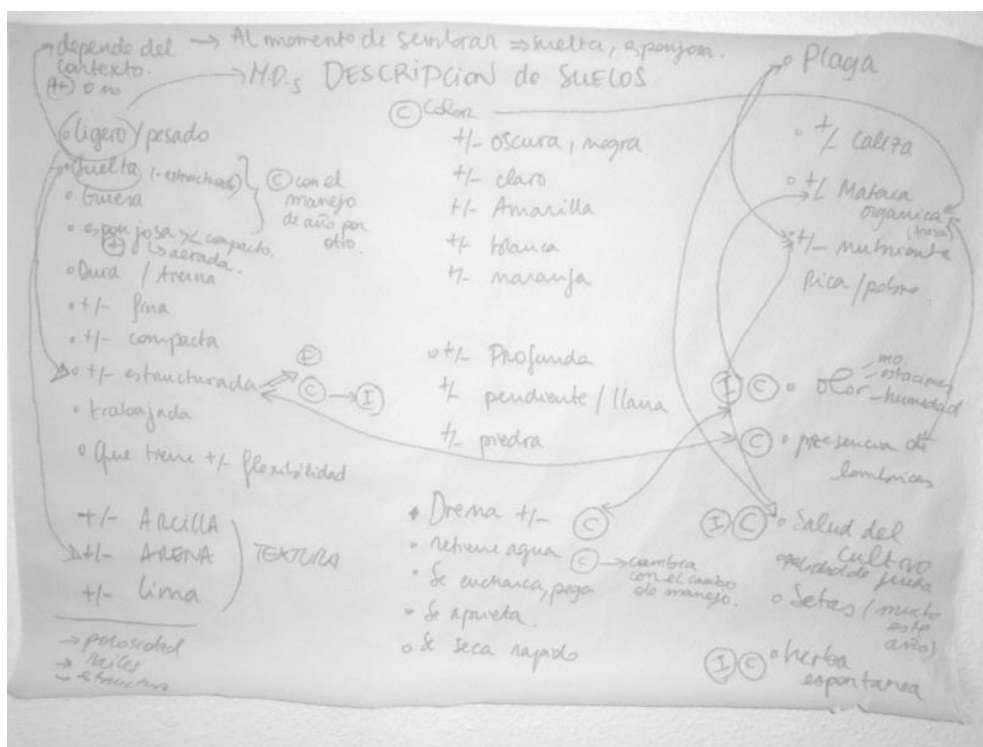 depende del → Al momento de sembrar ⇒ suelta, esponjosa.
contexto.
(++) o no
→ M.D.s DESCRIPCION de SUELOS
• ligero y pesado
• Suelta (- estructurada)
• Gruesa
• esponjosa >< compacto.
(+) ↳ aerada.
(C) con el
manejo
de año por
otro.
• Dura / Arena
• +/- fina
• +/- compacta
• +/- estructurada
(E)
(C) → (I)
• trabajada
• Que tiene +/- flexibilidad
+/- ARCILLA
+/- ARENA
+/- Lima
TEXTURA
→ porosidad
→ raices
→ estructura
(C) Color
+/- oscura, negra
+/- claro
+/- Amarilla
+/- blanca
+/- naranja
• +/- Profunda
+/- pendiente / llana
+/- piedra
• Drena +/- (C)
• retiene agua (C) → cambia
con el cambio
de manejo.
• Se encharca, pega
• Se aprieta.
• Se seca rapido
• Plaga
• +/- caliza
• +/- Materia
organica
• +/- nutriente
Rica / pobre
(I) (C) • olor
mo.
estaciones
humedad
(C) • presencia de
lombrices
(I) (C) • Salud del
cultivo
• Setas (mucho
este
año)
(I) (C) • herba
espontanea